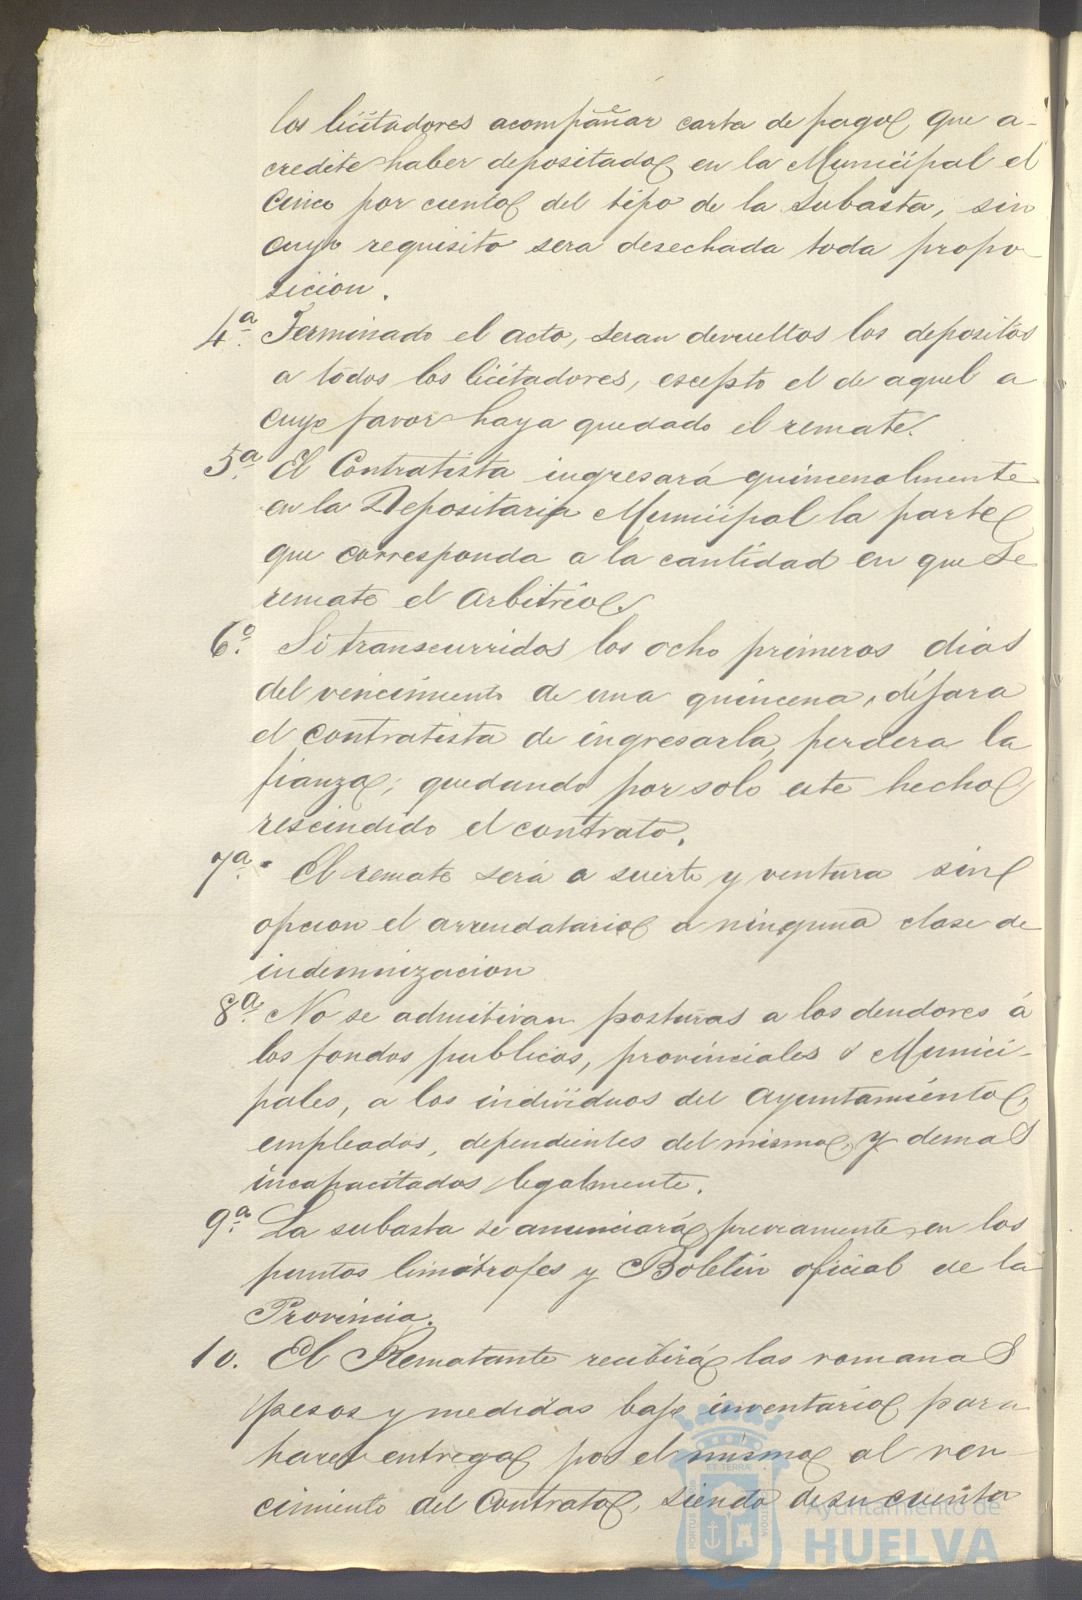 los licitadores acompañar carta de pago que a-
credite haber depositado en la Municipal el
Cinco por ciento del tipo de la Subasta, sin
cuyo requisito sera desechada toda propo-
sicion.
4ª. Terminado el acto, seran devueltos los depositos
a todos los licitadores, escepto el de aquel a
cuyo favor haya quedado el remate.
5ª. El Contratista ingresará quincenalmente
en la Depositaria Municipal la parte
que corresponda a la cantidad en que se
remate el arbitrio.
6º. Si transcurridos los ocho primeros dias
del vencimiento de una quincena, dejara
el contratista de ingresarla, perdera la
fianza; quedando por solo este hecho
rescindido el contrato.
7ª. El remate será a suerte y ventura sin
opcion el arrendatario a ninguna clase de
indemnizacion
8ª. No se admitiran posturas a los deudores á
los fondos publicos, provinciales ó Munici-
pales, a los individuos del Ayuntamiento,
empleados, dependientes del mismo, y demas
incapacitados legalmente.
9ª. La subasta se anunciará previamente en los
puntos limitrofes y Boletin oficial de la
Provincia.
10. El Rematante recibirá las romanas
pesos y medidas bajo inventario para
hacer entrega por el mismo al ven-
cimiento del Contrato, siendo de su cuenta
ET TERRA
PORTUS
CUSTODIA
Ayuntamiento de
HUELVA